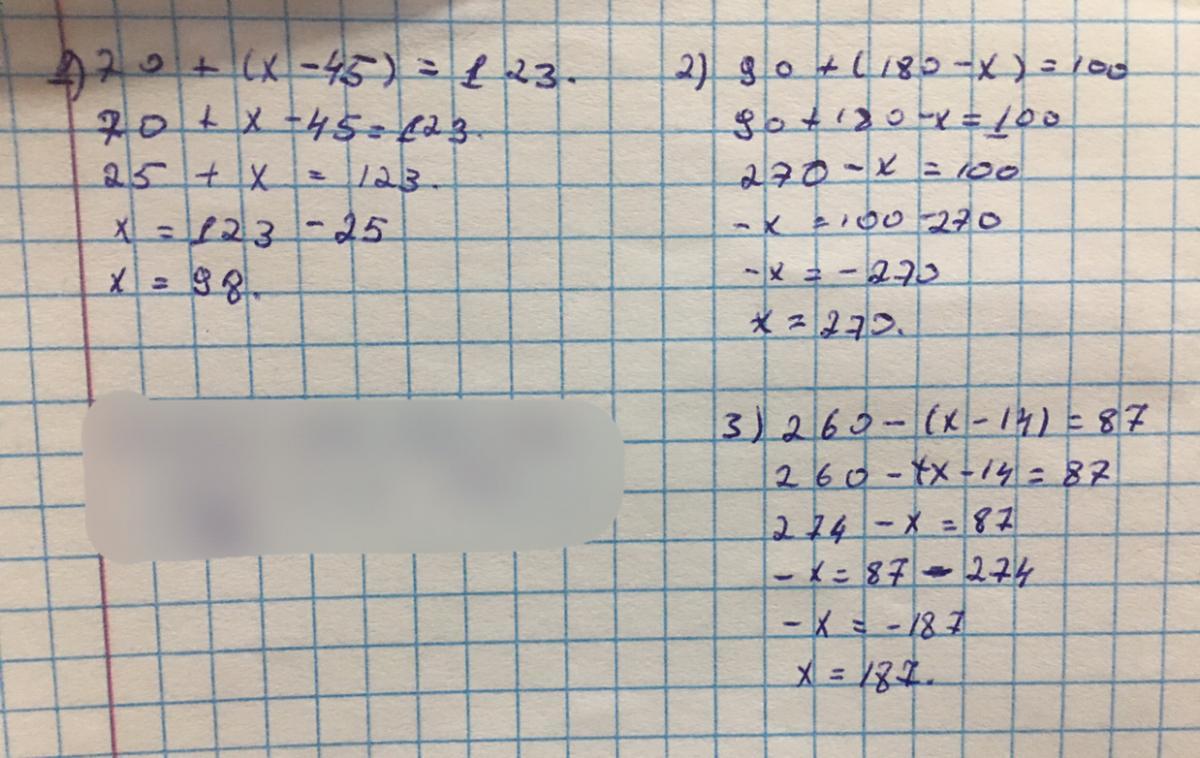 1) 70 + (x - 45) = 123.
70 + x - 45 = 123.
25 + x = 123.
x = 123 - 25
x = 98.
2) 90 + (180 - x) = 100
90 + 180 - x = 100
270 - x = 100
- x = 100 - 270
- x = - 270
x = 270.
3) 260 - (x - 14) = 87
260 - x - 14 = 87
274 - x = 87
- x = 87 - 274
- x = - 187
x = 187.